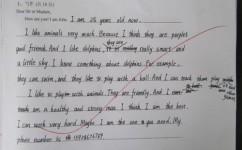 Dear Sir or Madam,
How are you? I am John. I am 25 years old now.
I like animals very much. Because I think they are people's
good friends. And I like dolphins, they are really smart and
a little shy. I know something about dolphins. For example,
they can swim, and they like to play with a ball. And I can teach them
I like to play with animals. They are friendly. And I
am a healthy and strong man. I think I am the best.
I can work very hard. Maybe I am the one you need. My
phone number is